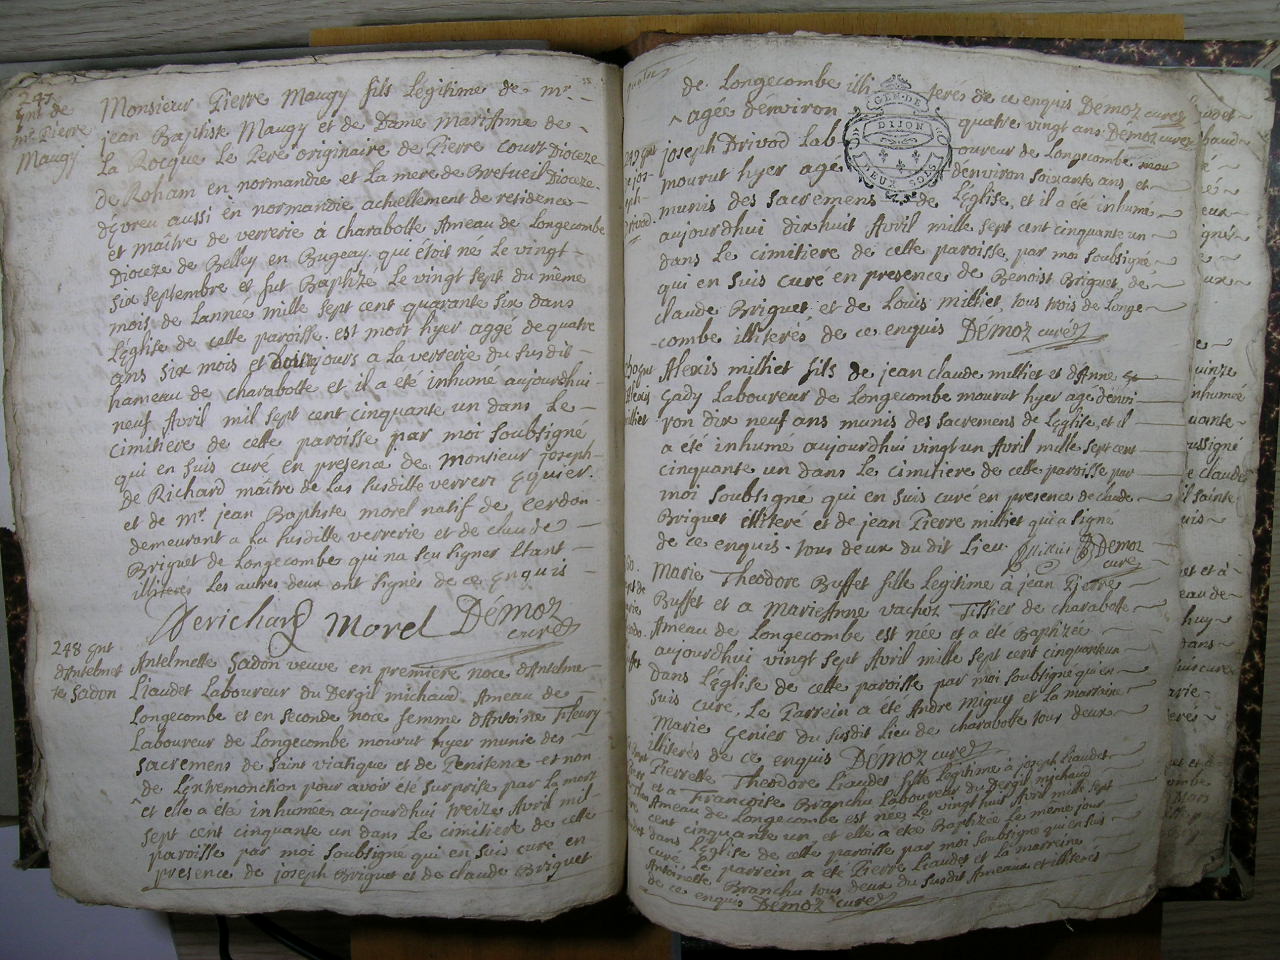 247
Ent de
mr Pierre
Maugy
Monsieur Pierre Maugy fils Legitime de mr
jean Baptiste Maugy et de Dame mariAnne de
La Rocque Le Pere originaire de Pierre Court Dioceze
de Roham en normandie et la mere de Bretueil Dioceze
dEvreu aussi en normandie achellement de residence
et maitre de verrerie a charabotte Ameau de Longecombe
Dioceze de Belley en Bugeay qui étoit né Le vingt
six septembre et fut Baptizé Le vingt sept du même
mois de Lannée mille sept cent quarante six dans
LEglise de cette paroisse est mort hyer aggé de quatre
ans six mois et jours a La verrerie du susdit
hameau de charabotte et il a été inhumé aujourdhui
neuf Avril mil sept cent cinquante un dans Le
cimitiere de cette paroisse par moi soubsigné
qui en suis curé en presence de Monsieur joseph
De Richard maître de Las susditte verreri Equier
et de mr jean Baptiste morel natif de Cerdon
demeurant a La susditte verrerie et de claude
Briguet de Longecombe qui na sçu signer Etant
illiterés Les autres deux ont signés de ce Enquis
Derichard Morel Démoz
curé
248 Ent
dAntelmet
te Sadon
Antelmette Sadon veuve en premiere noce dAntelme
Liaudet Laboureur du Dergil michaud Ameau de
Longecombe et en seconde noce femme dAntoine Fleury
Laboureur de Longecombe mourut hyer munie des
sacremens de saint viatique et de Penitence et non
de LExtremonction pour avoir été surprise par La mort
et elle a été inhumée aujourdhui treize Avril mil
sept cent cinquante un dans Le cimitiere de cette
paroisse par moi soubsigné qui en suis curé en
presence de joseph Briguet et de claude Briguet
de Longecombe illiterés de ce enquis Démoz curé
agée denviron quatre vingt ans Demoz curé
GEN. DE
DIJON
DEUX SOLS
249 Ent
joseph Drivod Laboureur de Longecombe
mourut hyer agé denviron soixante ans et
munis des sacremens de LEglise, et il a été inhumé
aujourdhui dix huit Avril mille sept cent cinquante un
dans Le cimitiere de cette paroisse, par moi soubsigné
qui en suis curé en presence de Benoist Briguet, de
claude Briguet et de Louis milliet, tous trois de Longe-
-combe illiterés de ce enquis Démoz curé
Alexis milliet fils de jean claude milliet et dAnne
Gady Laboureur de Longecombe mourut hyer agé denvi
ron dix neuf ans munis des sacremens de LEglise, et il
a été inhumé aujourdhui vingt un Avril mille sept cent
cinquante un dans Le cimitiere de cette paroisse par
moi soubsigné qui en suis curé en presence de claude
Briguet illiteré et de jean Pierre milliet qui a signé
de ce enquis. tous deux du dit Lieu. Milliet Démoz
curé
Marie Theodore Buffet fille Legitime à jean Pierre
Buffet et a MarieAnne vachoz Tissier de charabotte
Ameau de Longecombe est née et a été Baptizée
aujourdhui vingt sept Avril mille sept cent cinquante un
dans LEglise de cette paroisse par moi soubsigné qui en
suis curé, Le Parrein a été Andre Miguet et La marraine
Marie Genier du susdit Lieu de charabotte tous deux
illiterés de ce enquis Démoz curé
Pierrette Theodore Liaudet fille Legitime à joseph Liaudet
et a Francoise Branchu Laboureur du Dergil michaud
Ameau de Longecombe est née Le vingt huit Avril mille sept
cent cinquante un et elle a été Baptizée Le même jour
dans LEglise de cette paroisse par moi soubsigné qui en suis
curé Le parrein a été Pierre Liaudet et La marreine
Antoinette Branchu tous deux du susdit Ameaux et illiterés
de ce enquis Démoz curé